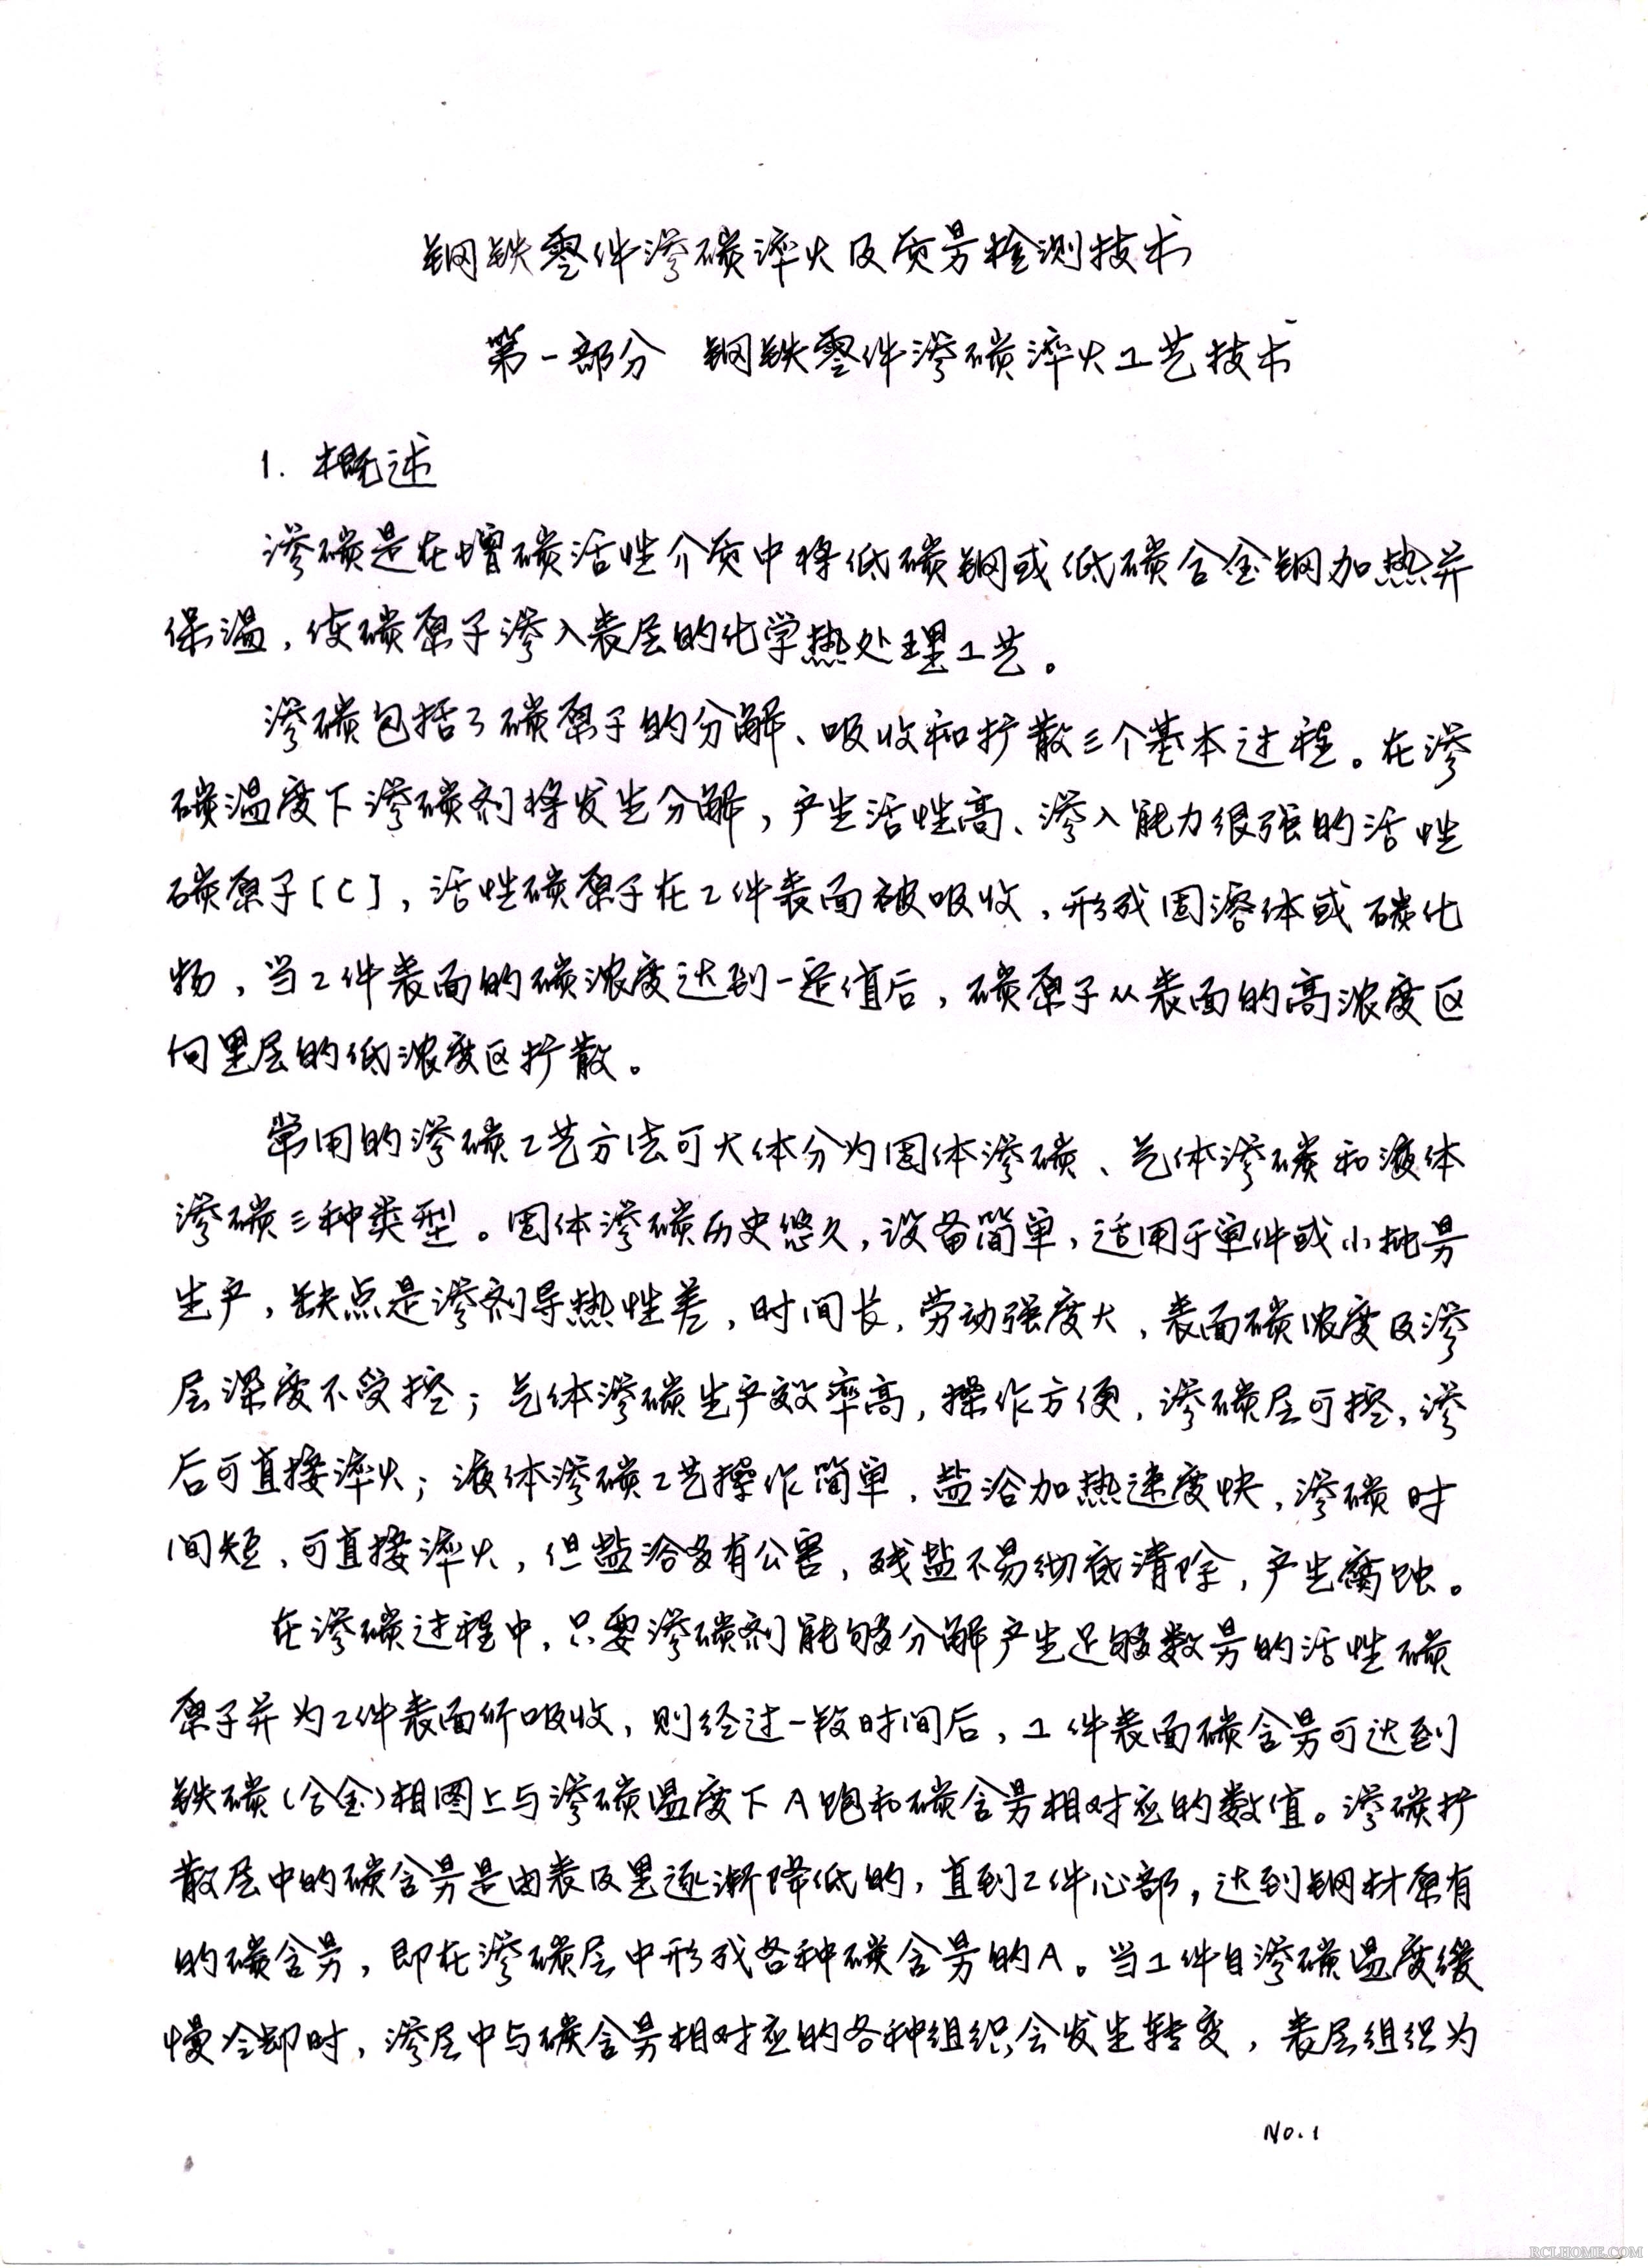 钢铁零件渗碳淬火及质量检测技术
第一部分 钢铁零件渗碳淬火工艺技术
1. 概述
渗碳是在增碳活性介质中将低碳钢或低碳合金钢加热并
保温,使碳原子渗入表层的化学热处理工艺。
渗碳包括了碳原子的分解、吸收和扩散三个基本过程。在渗
碳温度下渗碳剂将发生分解,产生活性高、渗入能力很强的活性
碳原子[C],活性碳原子在工件表面被吸收,形成固溶体或碳化
物,当工件表面的碳浓度达到一定值后,碳原子从表面的高浓度区
向里层的低浓度区扩散。
常用的渗碳工艺方法可大体分为固体渗碳、气体渗碳和液体
渗碳三种类型。固体渗碳历史悠久,设备简单,适用于单件或小批量
生产,缺点是渗剂导热性差,时间长,劳动强度大,表面碳浓度及渗
层深度不受控;气体渗碳生产效率高,操作方便,渗碳层可控,渗
后可直接淬火;液体渗碳工艺操作简单,盐浴加热速度快,渗碳时
间短,可直接淬火,但盐浴多有公害,残盐不易彻底清除,产生腐蚀。
在渗碳过程中,只要渗碳剂能够分解产生足够数量的活性碳
原子并为工件表面所吸收,则经过一段时间后,工件表面碳含量可达到
铁碳(合金)相图上与渗碳温度下A饱和碳含量相对应的数值。渗碳扩
散层中的碳含量是由表及里逐渐降低的,直到工件心部,达到钢材原有
的碳含量,即在渗碳层中形成各种碳含量的A。当工件自渗碳温度缓
慢冷却时,渗层中与碳含量相对应的各种组织会发生转变,表层组织为
No.1
RCLHOME.COM